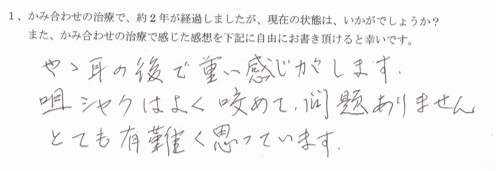 1、かみ合わせの治療で、約2年が経過しましたが、現在の状態は、いかがでしょうか？
また、かみ合わせの治療で感じた感想を下記に自由にお書き頂けると幸いです。
やゝ耳の後で重い感じがします.
咀シャクはよく咬めて、問題ありません
とても有難く思っています.